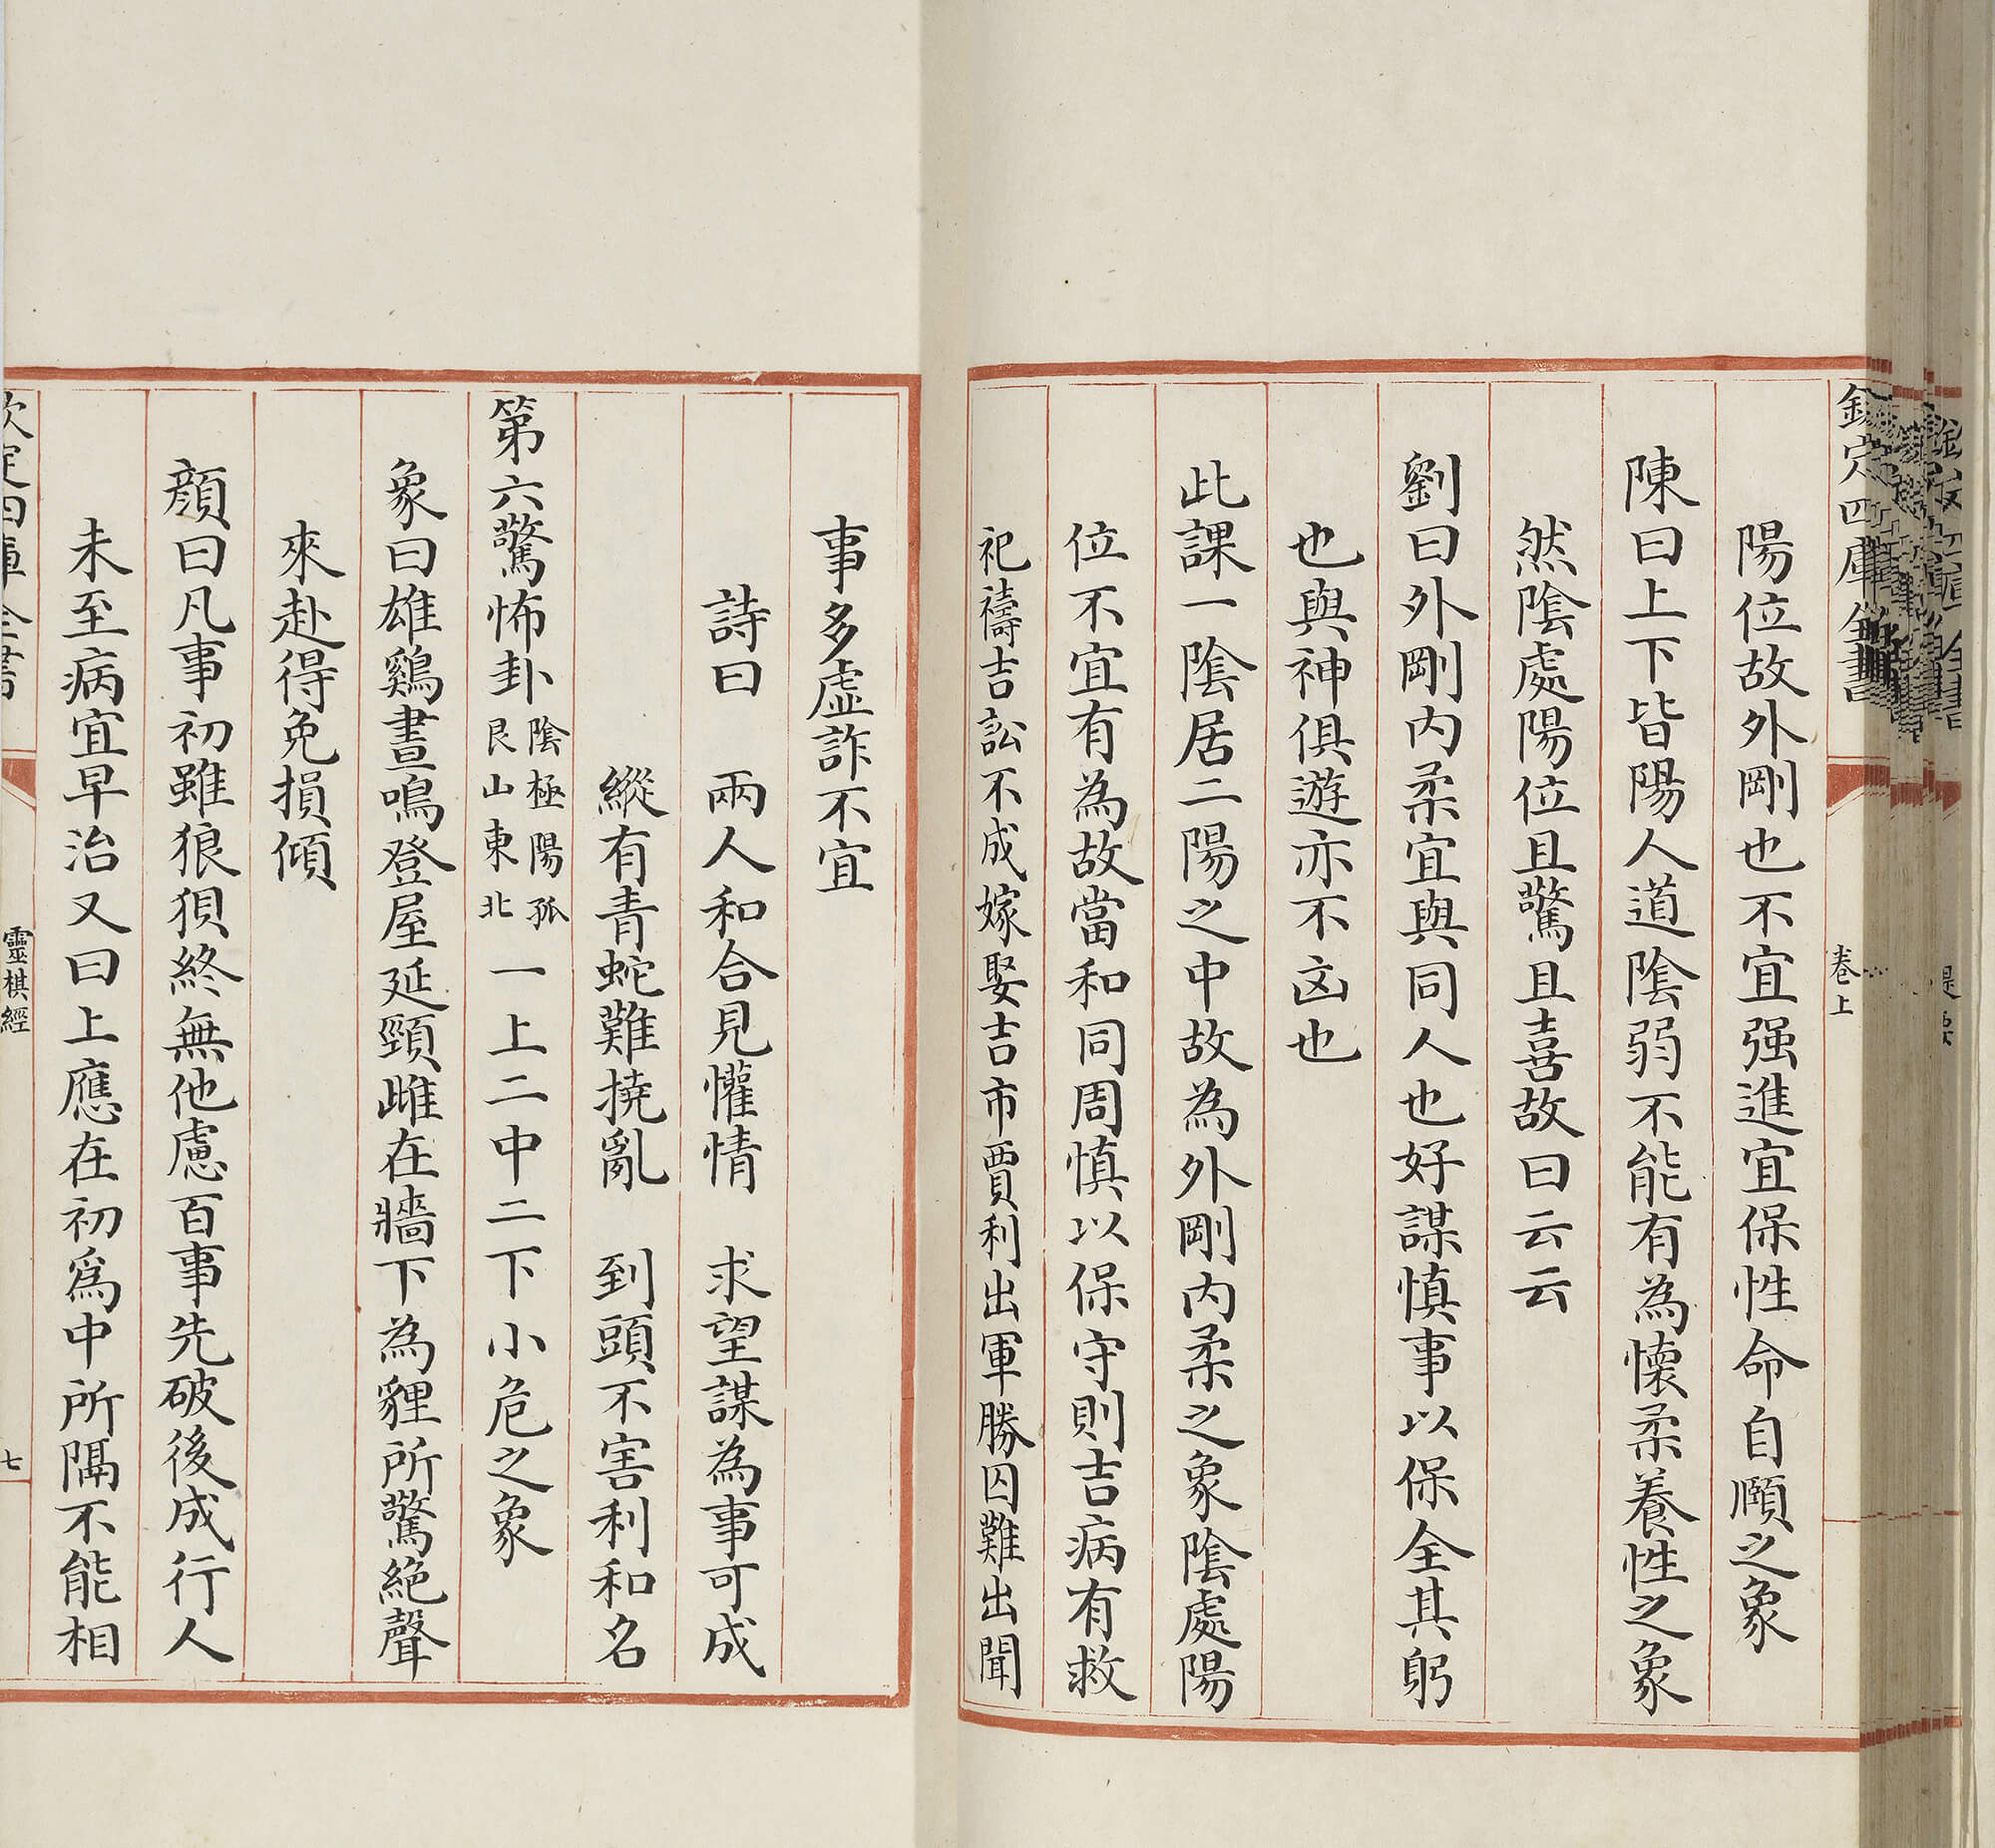 欽定四庫全書
卷上
陽位故外剛也不宜强進宜保性命自頤之象
陳曰上下皆陽人道隂弱不能有為懐柔養性之象
然隂處陽位且驚且喜故曰云云
劉曰外剛内柔宜與同人也好謀慎事以保全其躬
也與神俱遊亦不凶也
此課一隂居二陽之中故為外剛内柔之象隂處陽
位不宜有為故當和同周慎以保守則吉病有救
祀禱吉訟不成嫁娶吉市賈利出軍勝囚難出聞
事多虚詐不宜
詩曰　兩人和合見懽情　求望謀為事可成
縱有青蛇難撓亂　到頭不害利和名
第六驚怖卦 隂極陽孤 艮山東北 一上二中二下小危之象
象曰雄鷄晝鳴登屋延頸雌在牆下為貍所驚絶聲
來赴得免損傾
顔曰凡事初雖狼狽終無他慮百事先破後成行人
未至病宜早治又曰上應在初爲中所隔不能相
欽定四庫全書
靈棋經
七